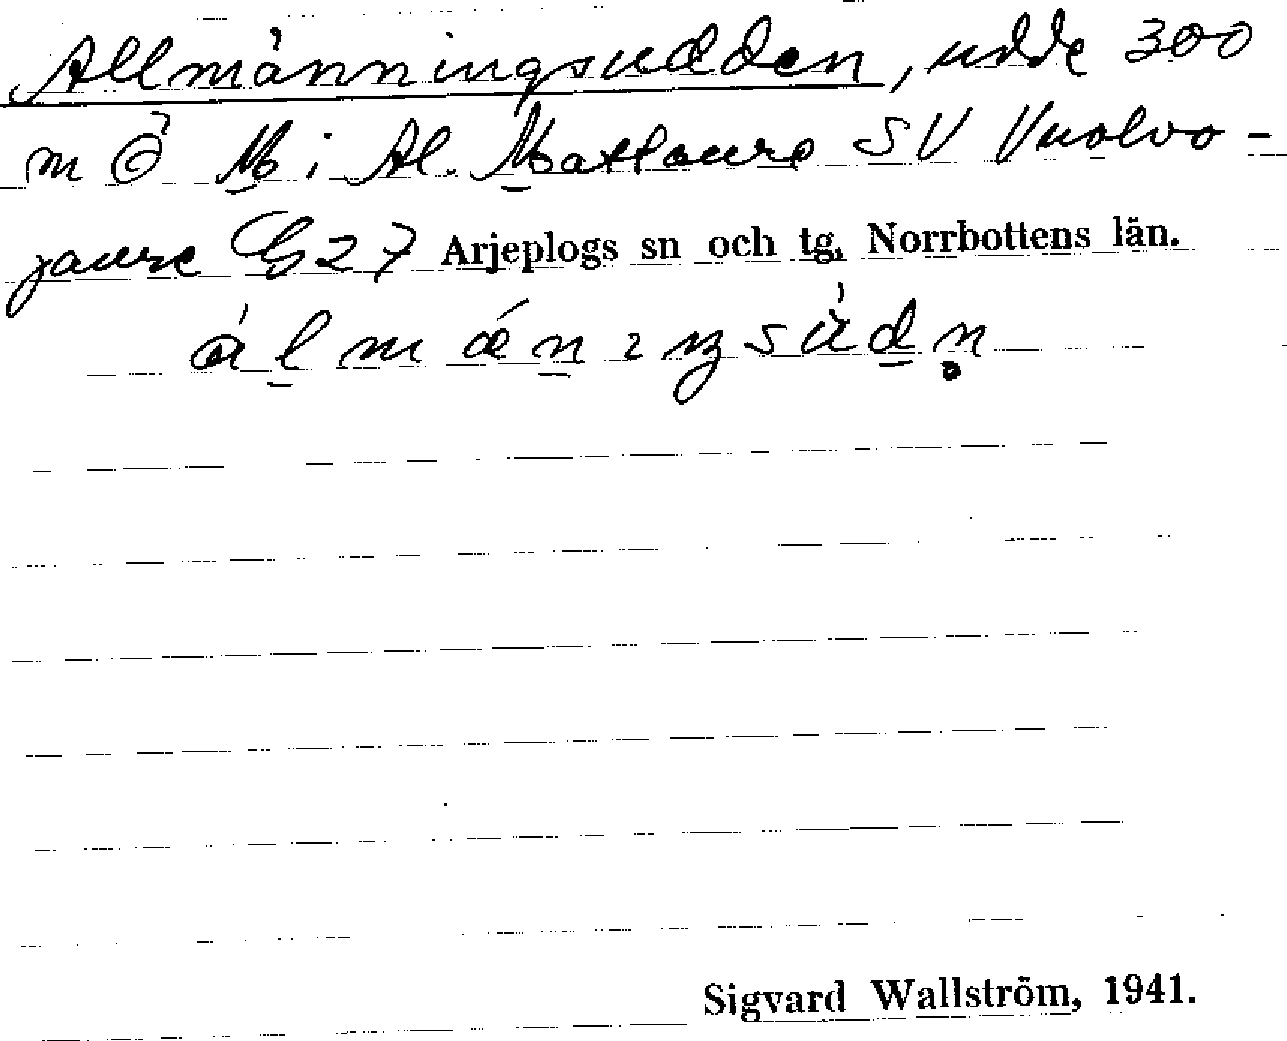 Allmänningsudden, udde 300
m Ö M i Al. Mattaure SV Vuolvo-
jaure G27 Arjeplogs sn och tg, Norrbottens län.
Sigvard Wallström, 1941.